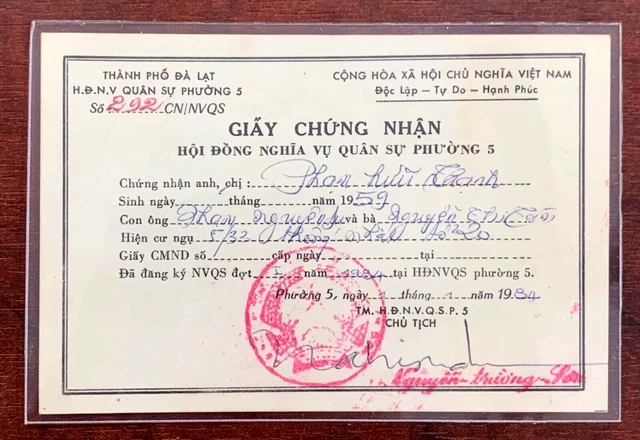 THÀNH PHỐ ĐÀ LẠT
H.Đ.N.V QUÂN SỰ PHƯỜNG 5
Số 292 CN/NVQS
CỘNG HÒA XÃ HỘI CHỦ NGHĨA VIỆT NAM
Độc Lập – Tự Do – Hạnh Phúc
GIẤY CHỨNG NHẬN
HỘI ĐỒNG NGHĨA VỤ QUÂN SỰ PHƯỜNG 5
Chứng nhận anh, chị : Phan Hữu Thanh
Sinh ngày tháng năm 1959
Con ông Phan Nguyên và bà Nguyễn Thị
Hiện cư ngụ 5/32
Giấy CMND số cấp ngày tại
Đã đăng ký NVQS đợt I năm 1984 tại HĐNVQS phường 5.
Phường 5, ngày 1 tháng 1 năm 1984
TM. H.Đ.N.V.Q.S.P. 5
CHỦ TỊCH
Nguyễn-trường-Sơn